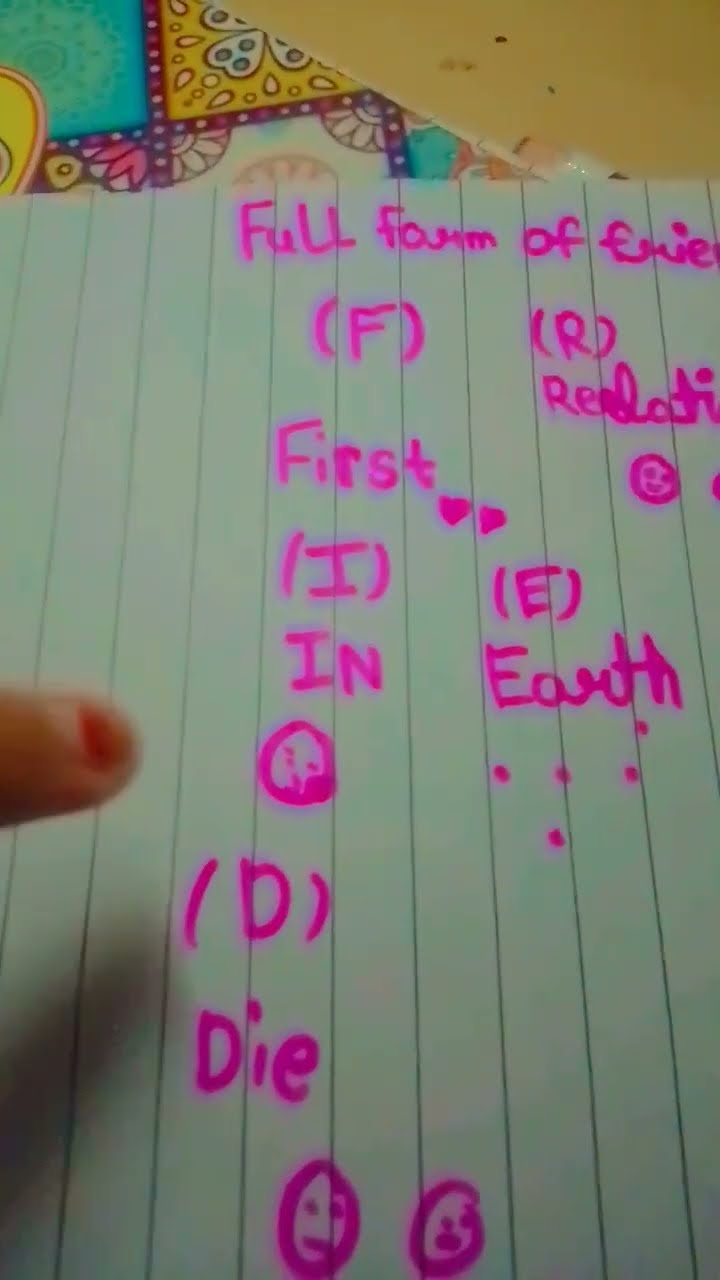 Full form of frie
(F) (R)
Relati
First
(I) (E)
IN Earth
(D)
Die